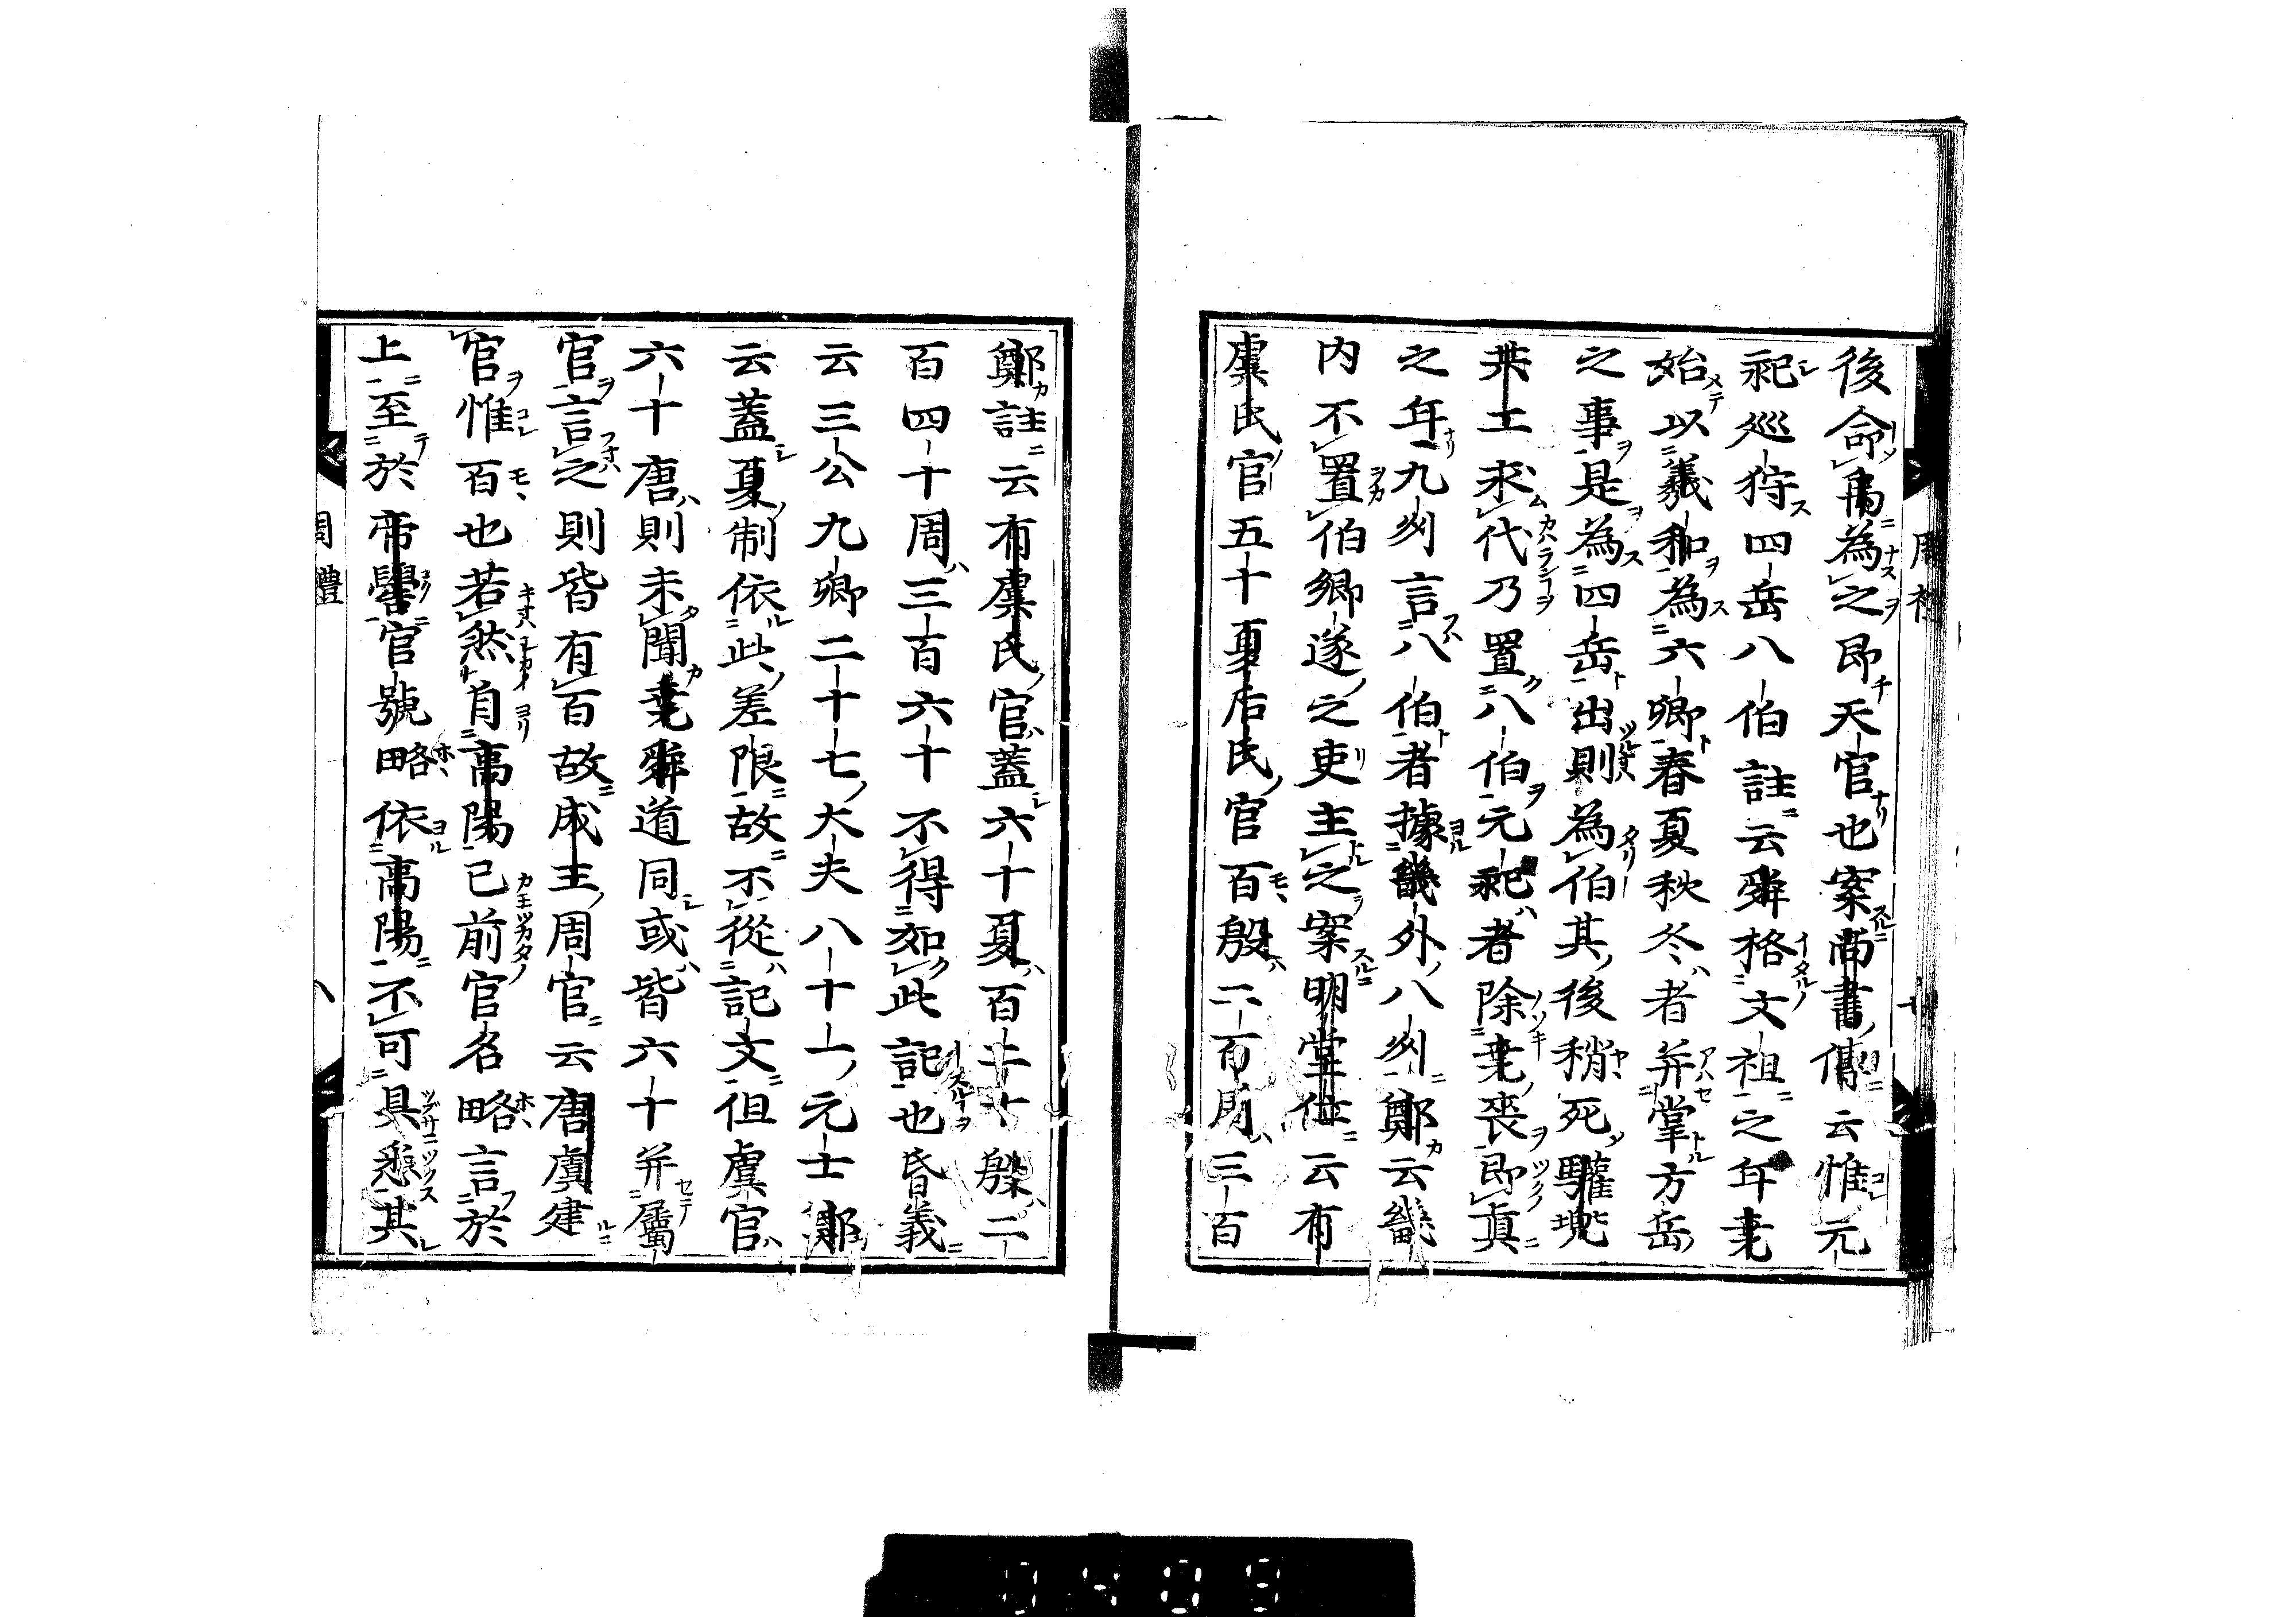 後命禹為之即天官也案尚書傳云惟元
祀巡狩四岳八伯註云舜格文祖之年堯
始以羲和為六卿春夏秋冬者并掌方岳
之事是為四岳出則為伯其後稍死驩兜
共工求代乃置八伯元祀者除堯喪即真
之年九州言八伯者據畿外八州鄭云畿
内不置伯鄉遂之吏主之案明堂位云有
虞氏官五十夏后氏官百殷二百周三百
鄭註云有虞氏官蓋六十夏百二十殷二
百四十周三百六十不得如此記也昏義
云三公九卿二十七大夫八十一元士鄭
云蓋夏制依此差限故不從記文但虞官
六十唐則未聞堯舜道同或皆六十并屬
官言之則皆有百故成王周官云唐虞建
官惟百也若然自高陽已前官名略言於
上至於帝嚳官號略依高陽不可具悉其
周禮
八